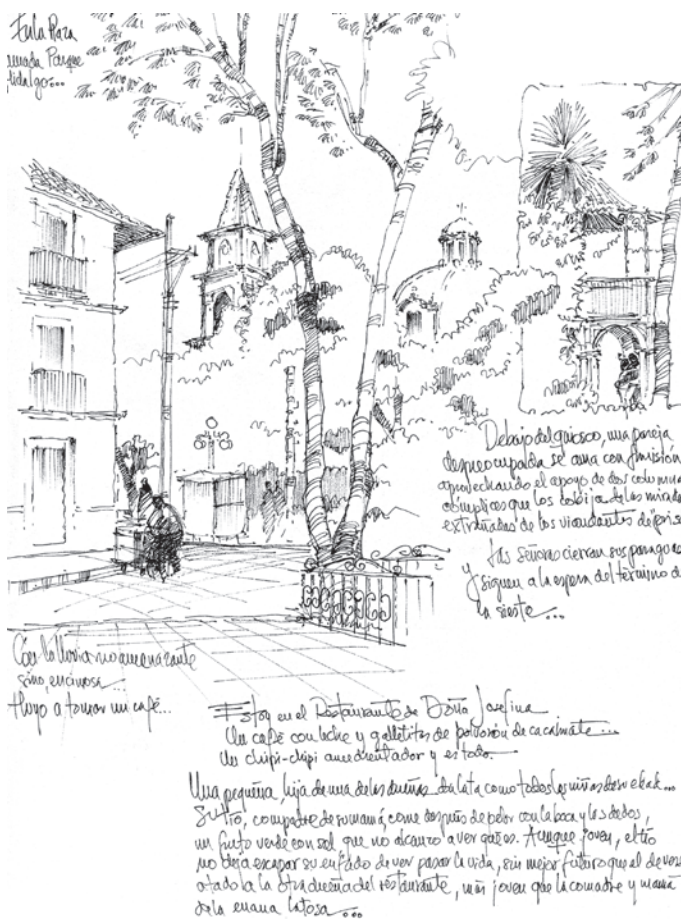 En la Plaza
llamada Parque
Hidalgo...
Debajo del quiosco, una pareja
despreocupada se ama con
aprovechando el apoyo de dos columnas
cómplices que los cobija de las miradas
extrañadas de los viandantes
Las Señoras cierran sus paraguas
y siguen a la espera del término de
la siesta...
Con la lluvia no amenazante
sino, encimosa...
Huyo a tomar un café...
Estoy en el Restaurante de Doña Josefina
Un café con leche y galletitas de polvorón de cacahuate...
Un chipi-chipi amedrentador y es todo.
Una pequeña, hija de una de las dueñas da lata como todos los niños de su edad...
Su tío, compadre de su mamá, come después de pelar con la boca y los dedos,
un fruto verde con sal que no alcanzo a ver qué es. Aunque joven, el tío
no deja escapar su enfado de ver pasar la vida, sin mejor futuro que el de verse
atado a la otra dueña del restaurante, más joven que la comadre y mamá
de la enana latosa...